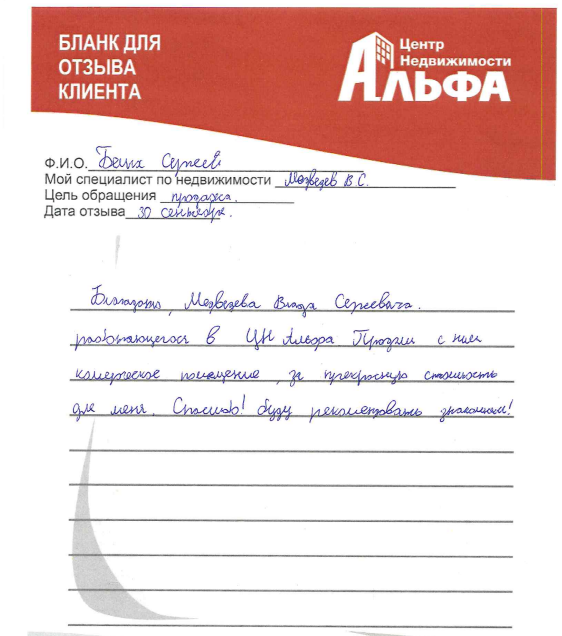 БЛАНК ДЛЯ
ОТЗЫВА
КЛИЕНТА
Центр
Недвижимости
АЛЬФА
Ф.И.О. Сергей
Мой специалист по недвижимости Медведев В.С.
Цель обращения продажа.
Дата отзыва 30 сентября.
Благодарю, Медведева Влада Сергеевича.
работающегося в ЦН Альфа. Продали с ним
комерческое помещение, за прекрасную стоимость
для меня. Спасибо! буду рекометовать знакомым!